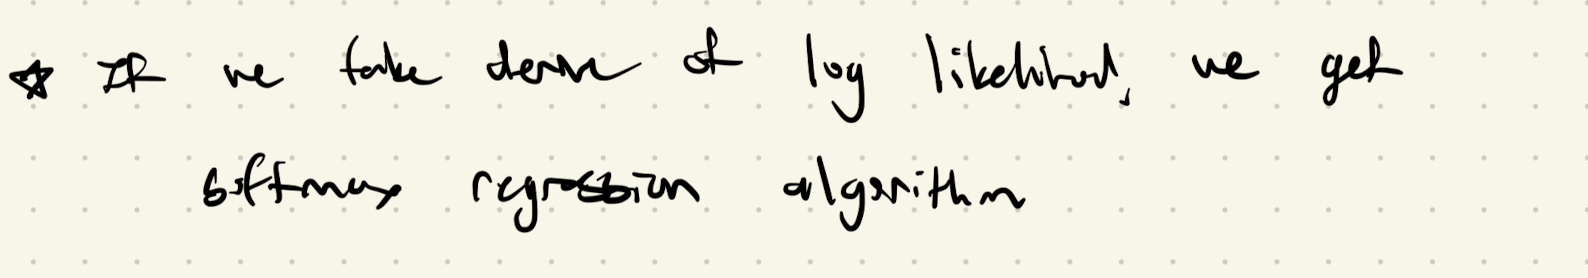 ☆ If we take deriv of log likelihood, we get
softmax regression algorithm